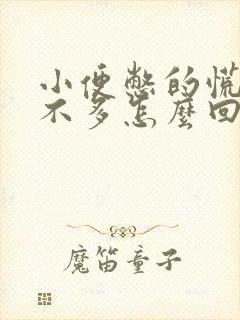 小便憋的慌
不多怎麼回
魔笛童子